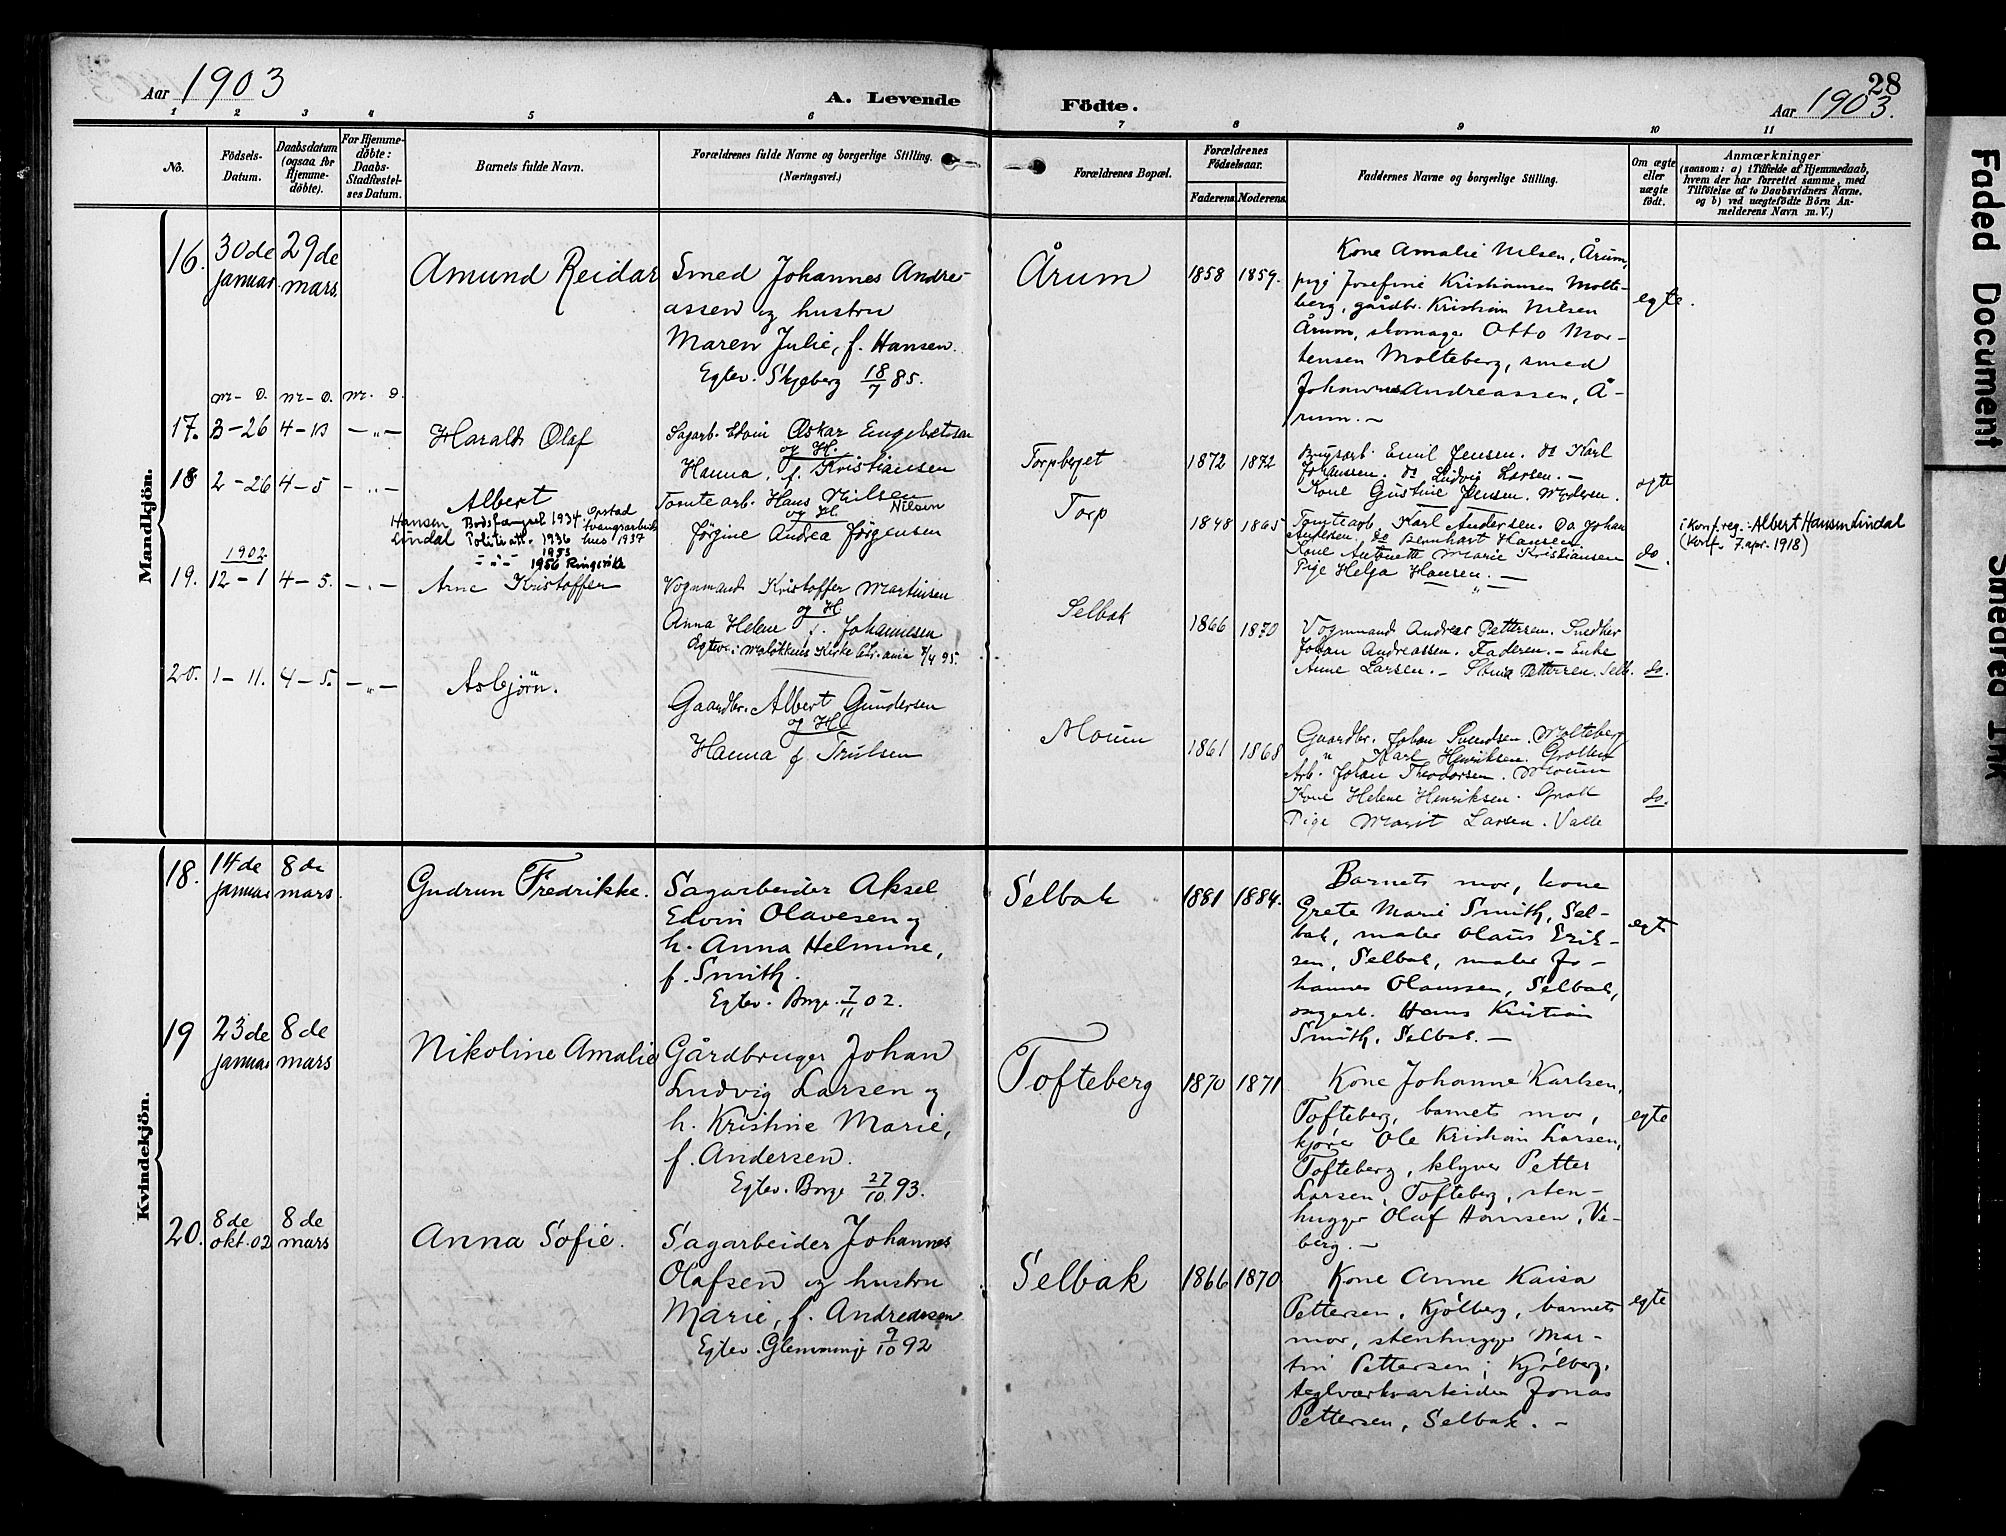 Aar 1903
A. Levende Födte.
28
Aar 1903.
1 2 3 4 5 6 7 8 9 10 11
No.
Födsels-
Datum.
Daabsdatum
(ogsaa for
Hjemme-
döbte).
For Hjemme-
döbte:
Daabs-
Stadfæstel-
ses Datum.
Barnets fulde Navn.
Forældrenes fulde Navne og borgerlige Stilling.
(Næringsvei.)
Forældrenes Bopæl.
Forældrenes
Födselsaar.
Faderens. Moderens.
Faddernes Navne og borgerlige Stilling.
Om ægte
eller
uægte
födt.
Anmærkninger
(saasom: a) i Tilfælde af Hjemmedaab,
hvem der har forrettet samme, med
Tilföielse af to Daabsvidners Navne.
og b) ved uægtefödte Börn An-
melderens Navn m. V.)
Mandkjön.
16.
30de
januar
29de
mars.
Amund Reidar
Smed Johannes Andre-
assen og hustru
Maren Julie, f. Hansen.
Egtev. Skjeberg 18/7 85.
Årum
1858
1859.
Kone Amalie Nilsen, Årum,
pige Josefine Kristiansen Molte-
berg, gårdbr. Kristian Nilsen
Årum, skomager Otto Mor-
tensen Molteberg, smed
Johannes Andreassen, Å-
rum. -
egte.
M- D. M- D. M. D.
17.
3-26
4-13
- " -
Harald Olaf
Sagarb. Edvin Oskar Engebretsen
og H.
Hanna, f. Kristiansen
Torpberget
1872
1872
Brugsarb. Emil Jensen. do Karl
Johanssen. do Ludvig Larsen. -
Kone Gustine Jensen. Moderen.
egte
18
2-26
4-5
- " -
Albert
Hansen
Lindal
Bodsfængsel 1934. Opstad
tvangsarbeids
hus 1937
Politiatt. 1936
- " - 1953
- " - 1956 Ringsvike
Tomtearb. Hans Nilsen
og H. Nilsen
Jørgine Andrea Jørgensen
Torp
1848
1865
Tomtearb. Karl Andersen. Do Johan
Andersen. do Bernhart Hansen
Kone Antonette Marie Kristiansen
Pige Helga Hansen. -
do.
i Konf.reg.: Albert Hansen Lindal
(Konf. 7. apr. 1918)
19.
1902
12-1
4-5.
- " -
Arne Kristoffer
Vognmand Kristoffer Martinsen
og H
Anna Helene f. Johannesen
Egtev: Maløkkens Kirke Chr.ania 7/4 95.
Selbak
1866
1870
Vognmand Andreas Pettersen. Snedker
Johan Andreassen. Faderen. - Enke
Anne Larsen. - Stina Pettersen. Selb.
do.
20.
1-11.
4-5.
- " -
Asbjörn.
Gaardbr. Albert Gundersen
og H.
Hanna f Trulsen
Moum
1861
1868
Gaardbr. Johan Svendsen. Molteberg
" Karl Henriksen. Grottem
Arb. Johan Theodorsen. Moum
Kone Helene Henriksen. Grott
Pige Marit Larsen. Valle
do.
Kvindekjön.
18.
14de
januar
8de
mars.
Gudrun Fredrikke.
Sagarbeider Aksel
Edvin Olavesen og
h. Anna Helmine,
f. Smith.
Egtev. Borge 7/11 02.
Selbak
1881
1884.
Barnets mor, kone
Grete Marie Smith, Sel-
bak, maler Olaus Erik-
sen, Selbak, maler Jo-
hannes Olaussen, Selbak,
sagarb. Hans Kristian
Smith, Selbak. -
egte
19
23de
januar
8de
mars
Nikoline Amalie
Gårdbruger Johan
Ludvig Larsen og
h. Kristine Marie,
f. Andersen.
Egtev. Borge 27/10 93.
Tofteberg
1870
1871
Kone Johanne Karlsen,
Tofteberg, barnets mor,
kjører Ole Kristian Larsen,
Tofteberg, klyver Petter
Larsen, Tofteberg, sten-
hugger Olaf Hansen, Ve-
berg. -
egte
20.
8de
okt. 02
8de
mars
Anna Sofie.
Sagarbeider Johannes
Olafsen og hustru
Marie, f. Andreassen
Egtev. Glemminge 9/10 92
Selbak
1866
1870
Kone Anne Kaisa
Pettersen, Kjølberg, barnets
mor, stenhugger Mar-
tin Pettersen, Kjølberg,
teglværksarbeider Jonas
Pettersen, Selbak. -
egte
Faded Document
Smeared Ink